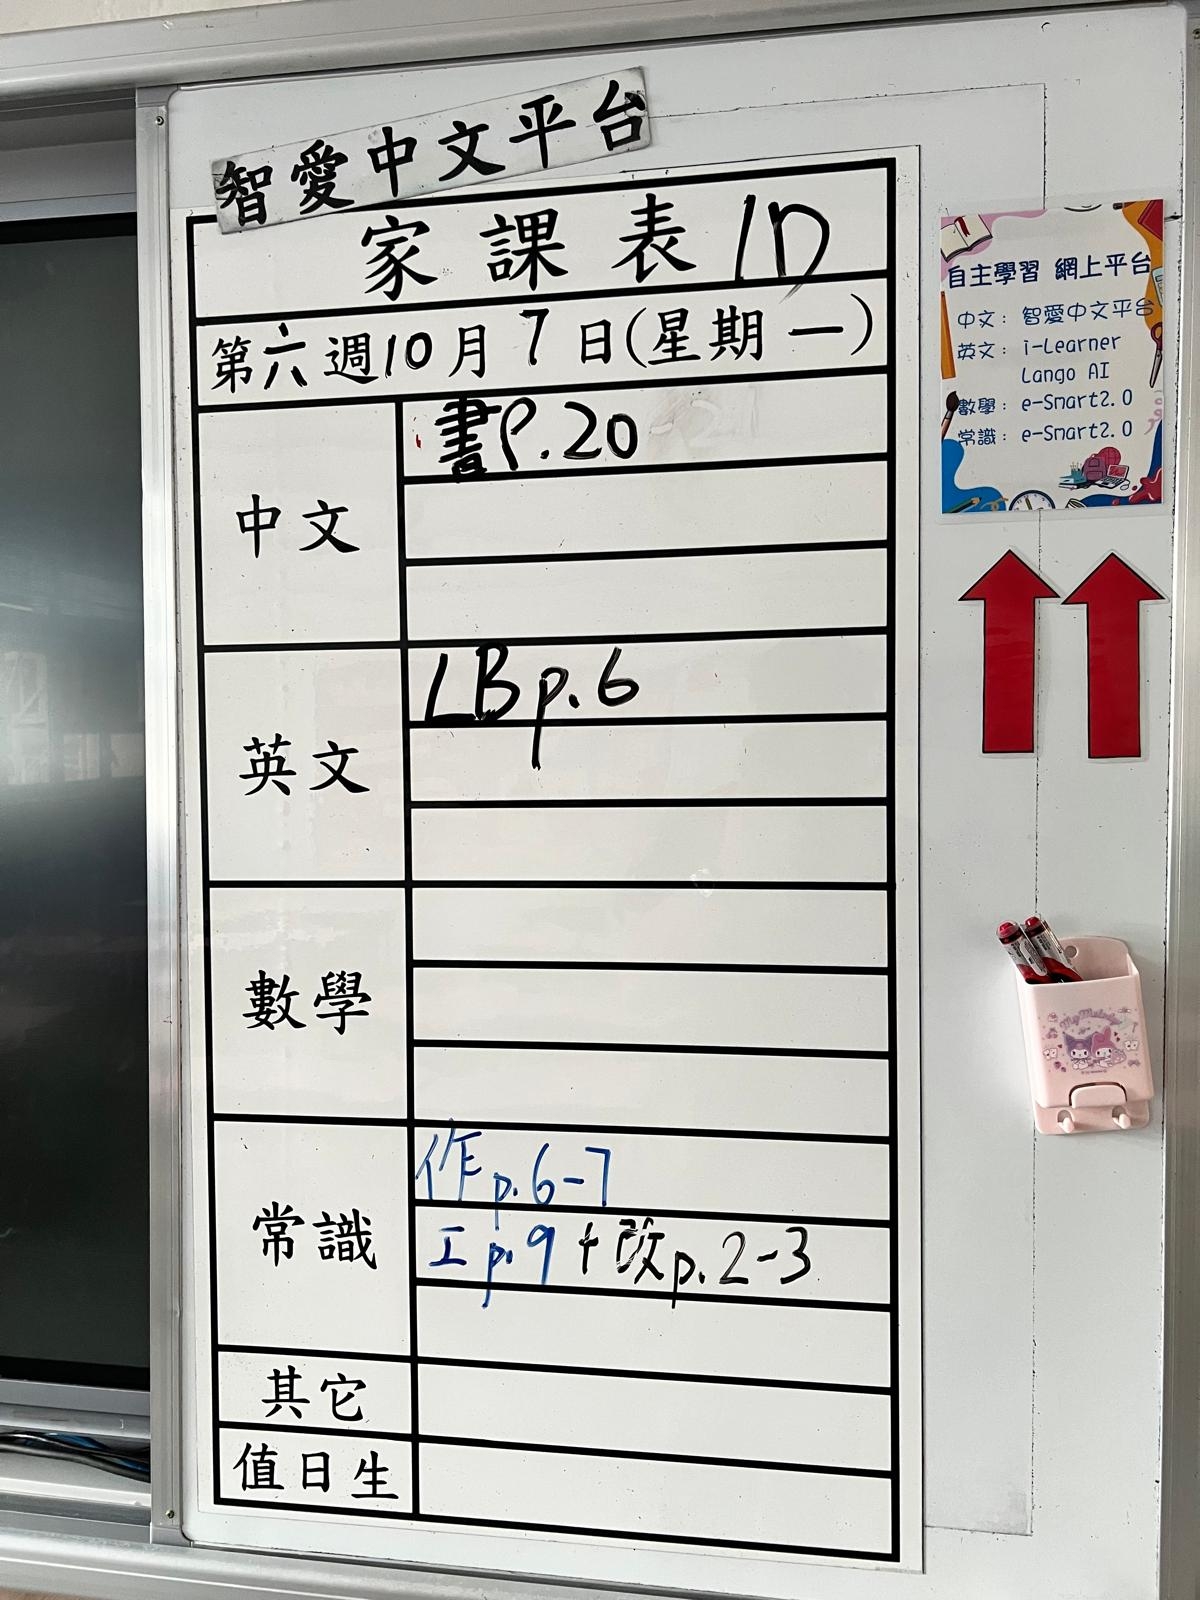 智愛中文平台
家課表 1D
第六週10月7日(星期一)
中文
書P.20
英文
LB p.6
數學
常識
作p.6-7
工p.9+改p.2-3
其它
值日生
自主學習 網上平台
中文：智愛中文平台
英文：i-Learner
Lango AI
數學：e-Smart2.0
常識：e-Smart2.0
My Melody